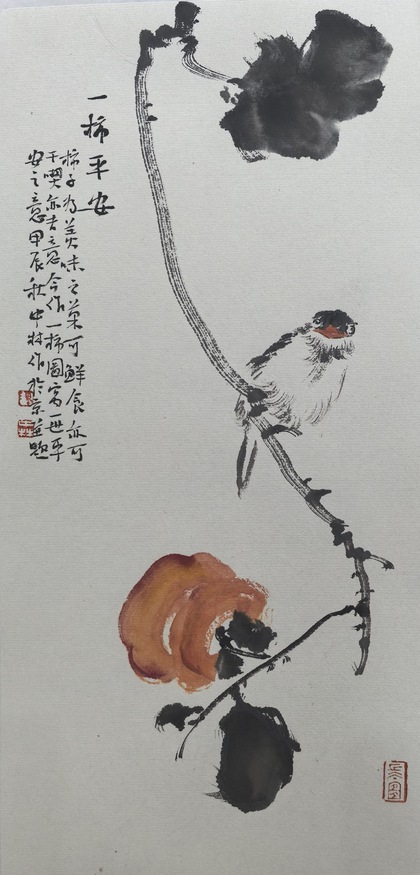 一柿平安
柿子为美味之菓可鲜食亦可
干喫亦吉意今作一柿图寓一世平
安之意甲辰秋中村作於京並题